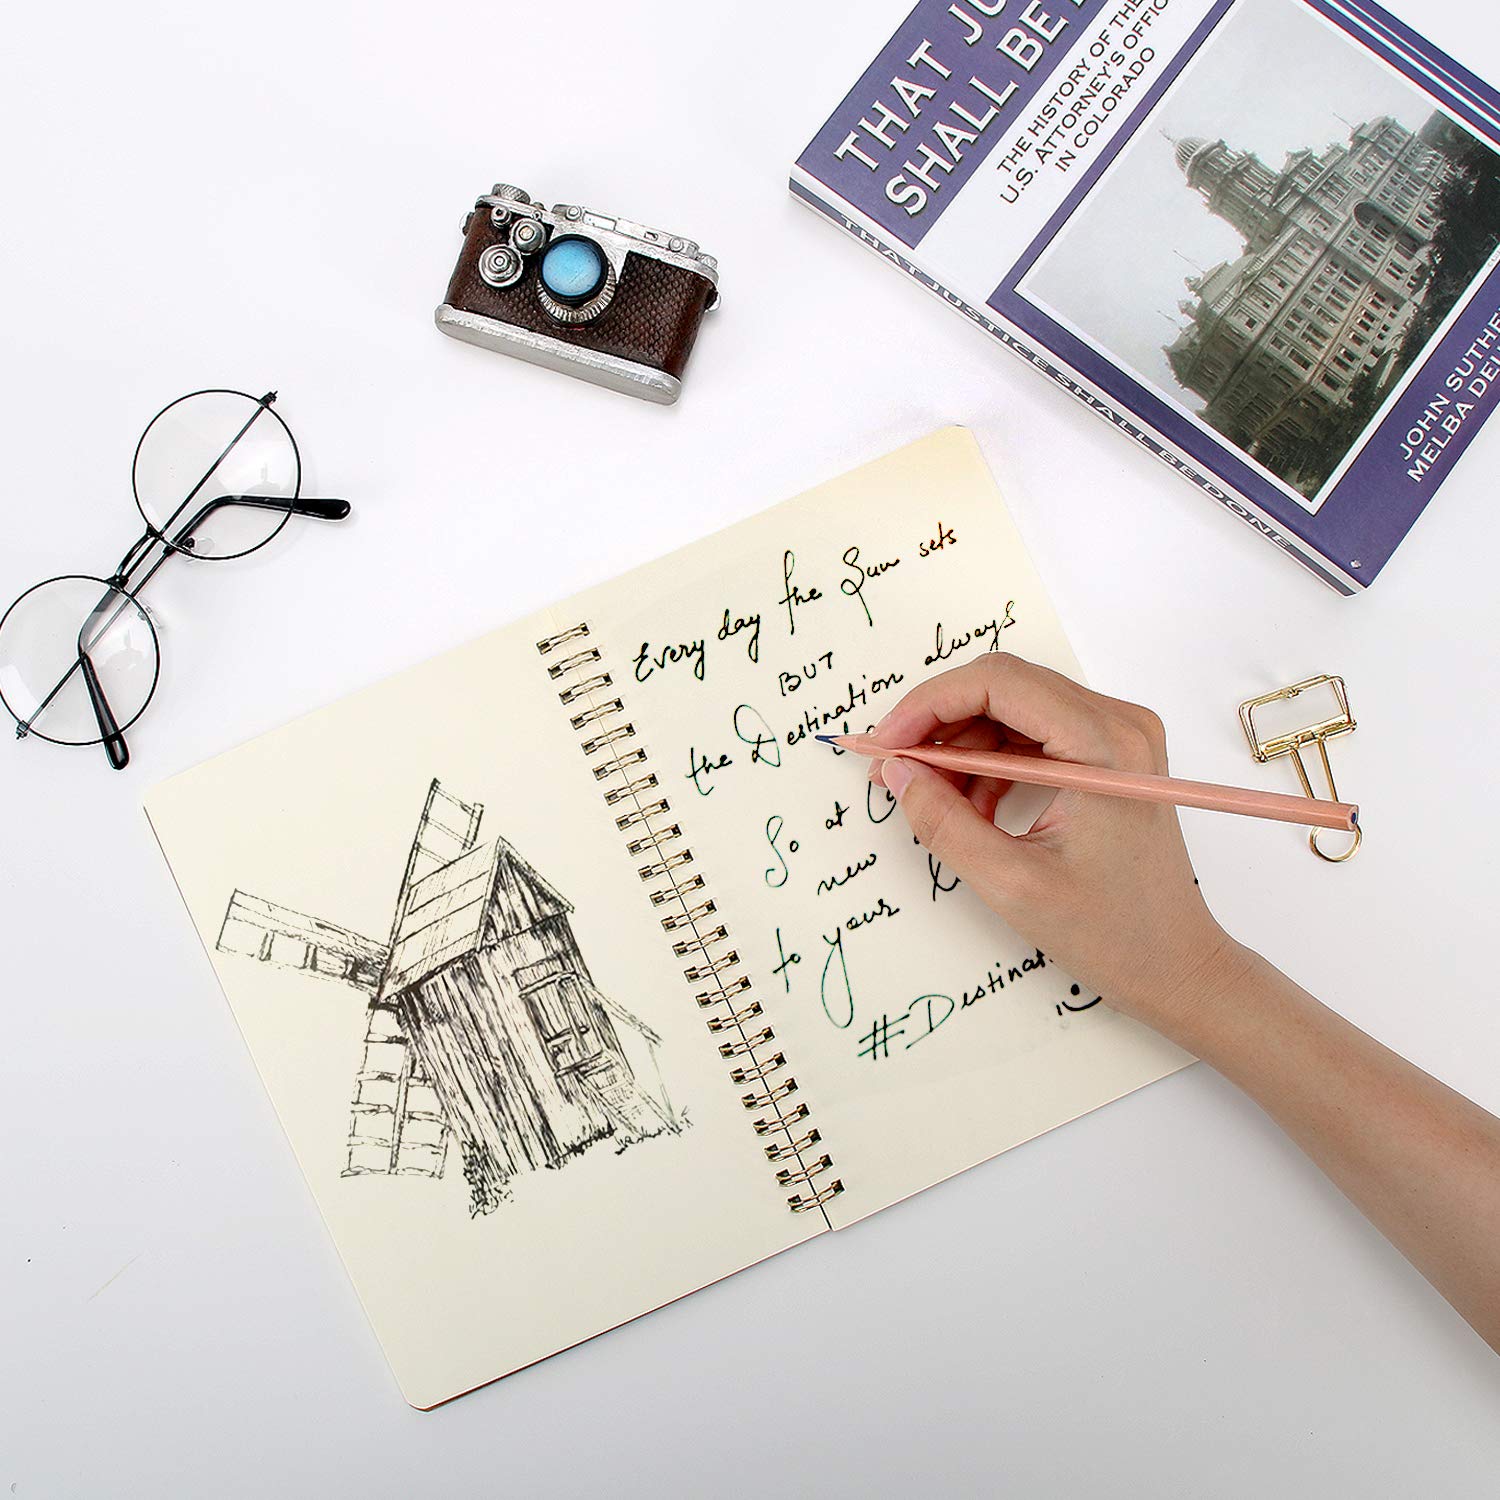 THAT JU
SHALL BE
THE HISTORY OF THE
U.S. ATTORNEY'S OFFIC
IN COLORADO
JOHN SUTHE
MELBA DEU
THAT JUSTICE SHALL BE DONE
Every day the Sun sets
BUT
the Destination always
So at
new
to your
#Destinat